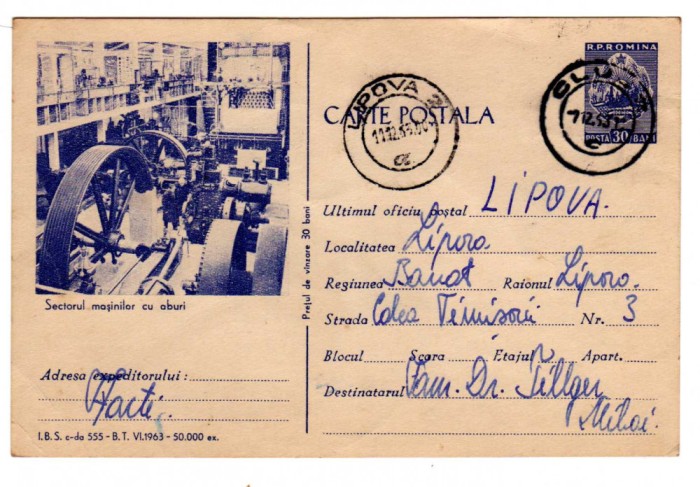 R.P. ROMINA
POSTA 30 BANI
CLUJ
LIPOVA 2
CARTE POSTALA
Sectorul mașinilor cu aburi
Adresa expeditorului :
I.B.S. c-da 555 - B.T. VI.1963 - 50.000 ex.
Prețul de vînzare 30 bani
Ultimul oficiu poștal LIPOVA.
Localitatea Lipova
Regiunea Banat Raionul Lipova.
Strada Calea Timișorii Nr. 3
Blocul Scara Etajul Apart.
Destinatarul Fam. Dr. Tillger
Mihai.